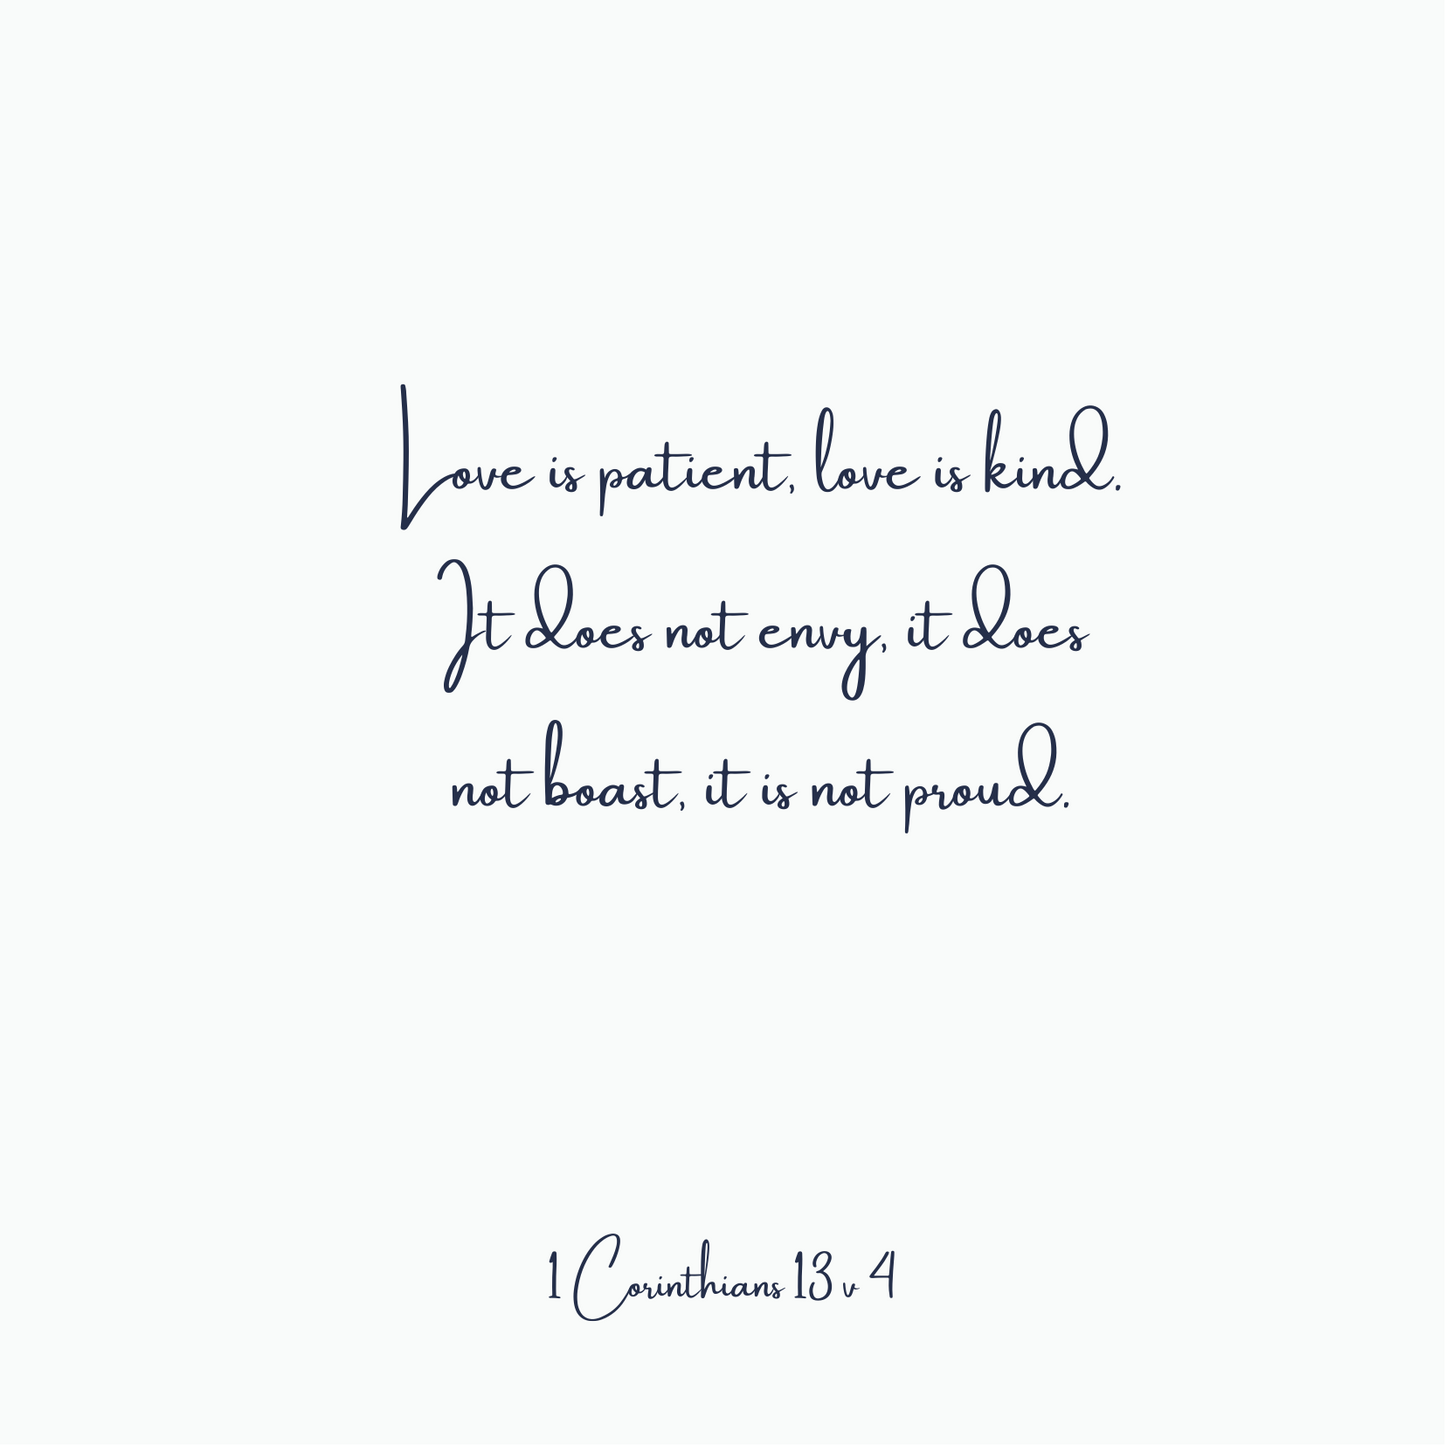 Love is patient, love is kind.
It does not envy, it does
not boast, it is not proud.
1 Corinthians 13 v 4